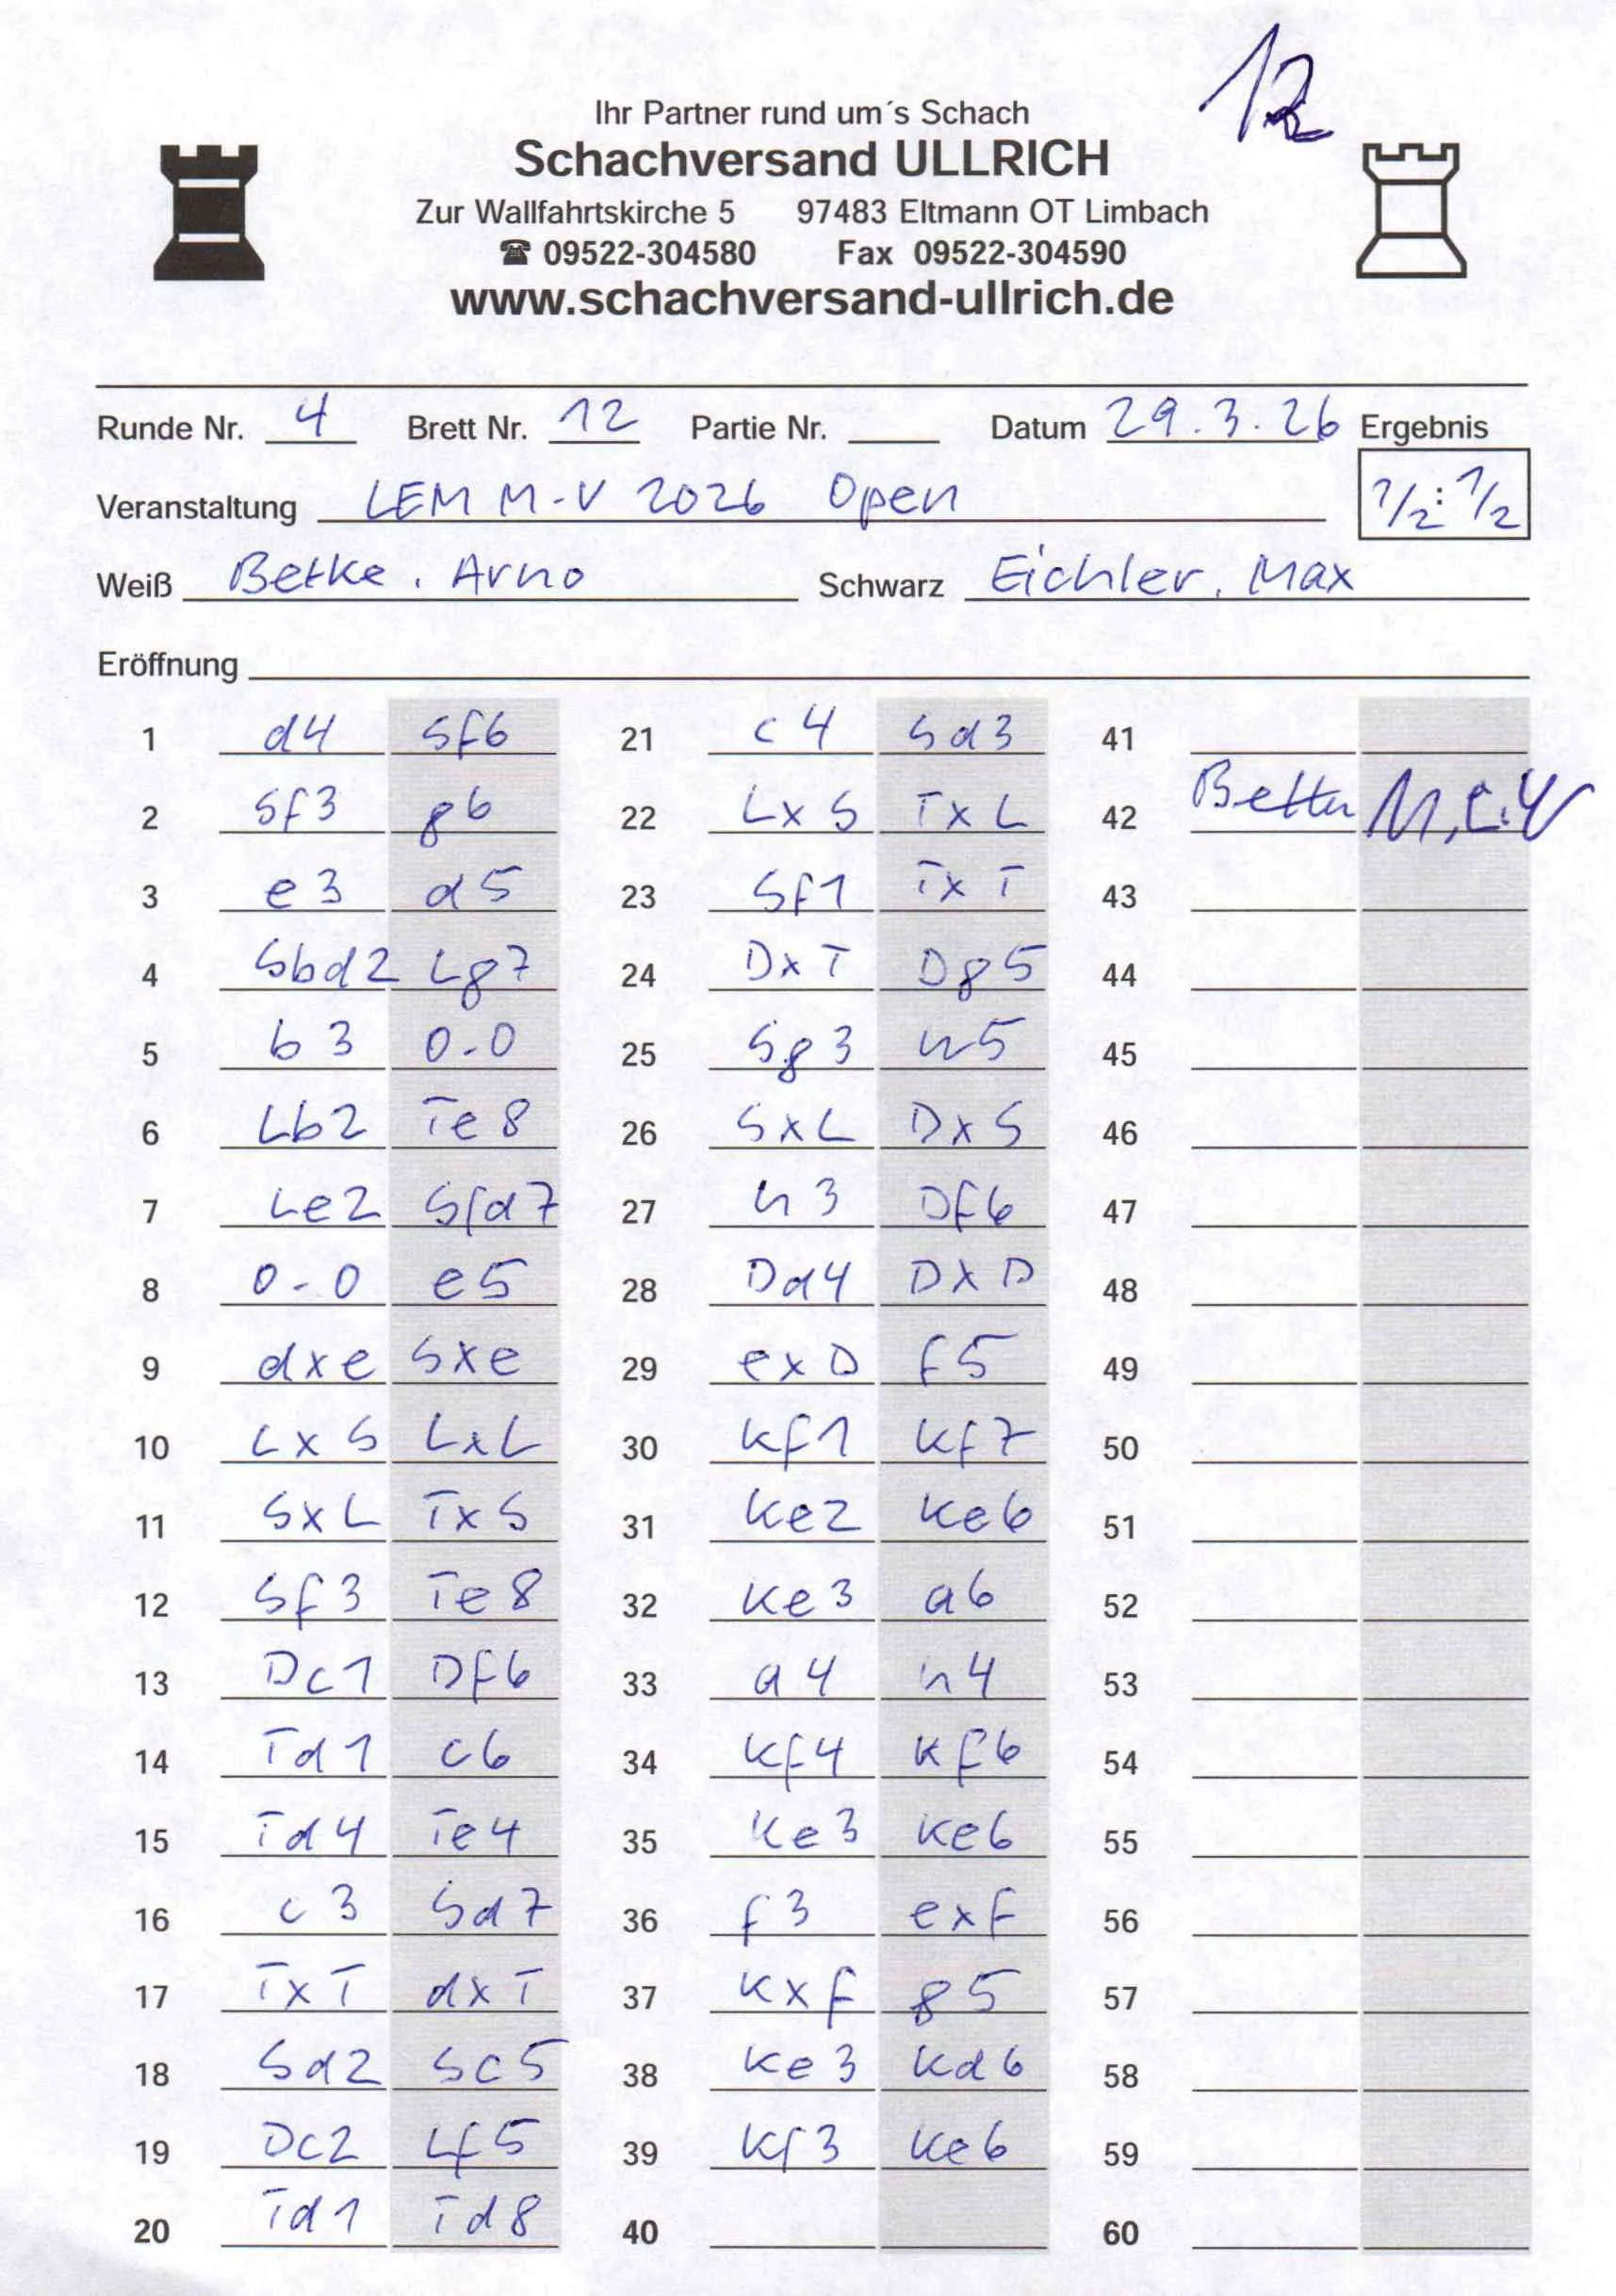 12
Ihr Partner rund um´s Schach
Schachversand ULLRICH
Zur Wallfahrtskirche 5 97483 Eltmann OT Limbach
☎ 09522-304580 Fax 09522-304590
www.schachversand-ullrich.de
Runde Nr. 4 Brett Nr. 12 Partie Nr. Datum 29.3.26 Ergebnis
Veranstaltung LEM M-V 2026 Open 1/2:1/2
Weiß Betke, Arno Schwarz Eichler, Max
Eröffnung
1 d4 Sf6 21 c4 Sd3 41
2 Sf3 g6 22 LxS TxL 42
3 e3 d5 23 Sf1 TxT 43
4 Sbd2 Lg7 24 DxT Dg5 44
5 b3 0-0 25 Sg3 h5 45
6 Lb2 Te8 26 SxL DxS 46
7 Le2 Sfd7 27 h3 Df6 47
8 0-0 e5 28 Dd4 DxD 48
9 dxe Sxe 29 exD f5 49
10 LxS LxL 30 Kf1 Kf7 50
11 SxL TxS 31 Ke2 Ke6 51
12 Sf3 Te8 32 Ke3 a6 52
13 Dc1 Df6 33 a4 h4 53
14 Td1 c6 34 Kf4 Kf6 54
15 Td4 Te4 35 Ke3 Ke6 55
16 c3 Sd7 36 f3 exf 56
17 TxT dxT 37 Kxf g5 57
18 Sd2 Sc5 38 Ke3 Kd6 58
19 Dc2 Lf5 39 Kf3 Ke6 59
20 Td1 Td8 40 60